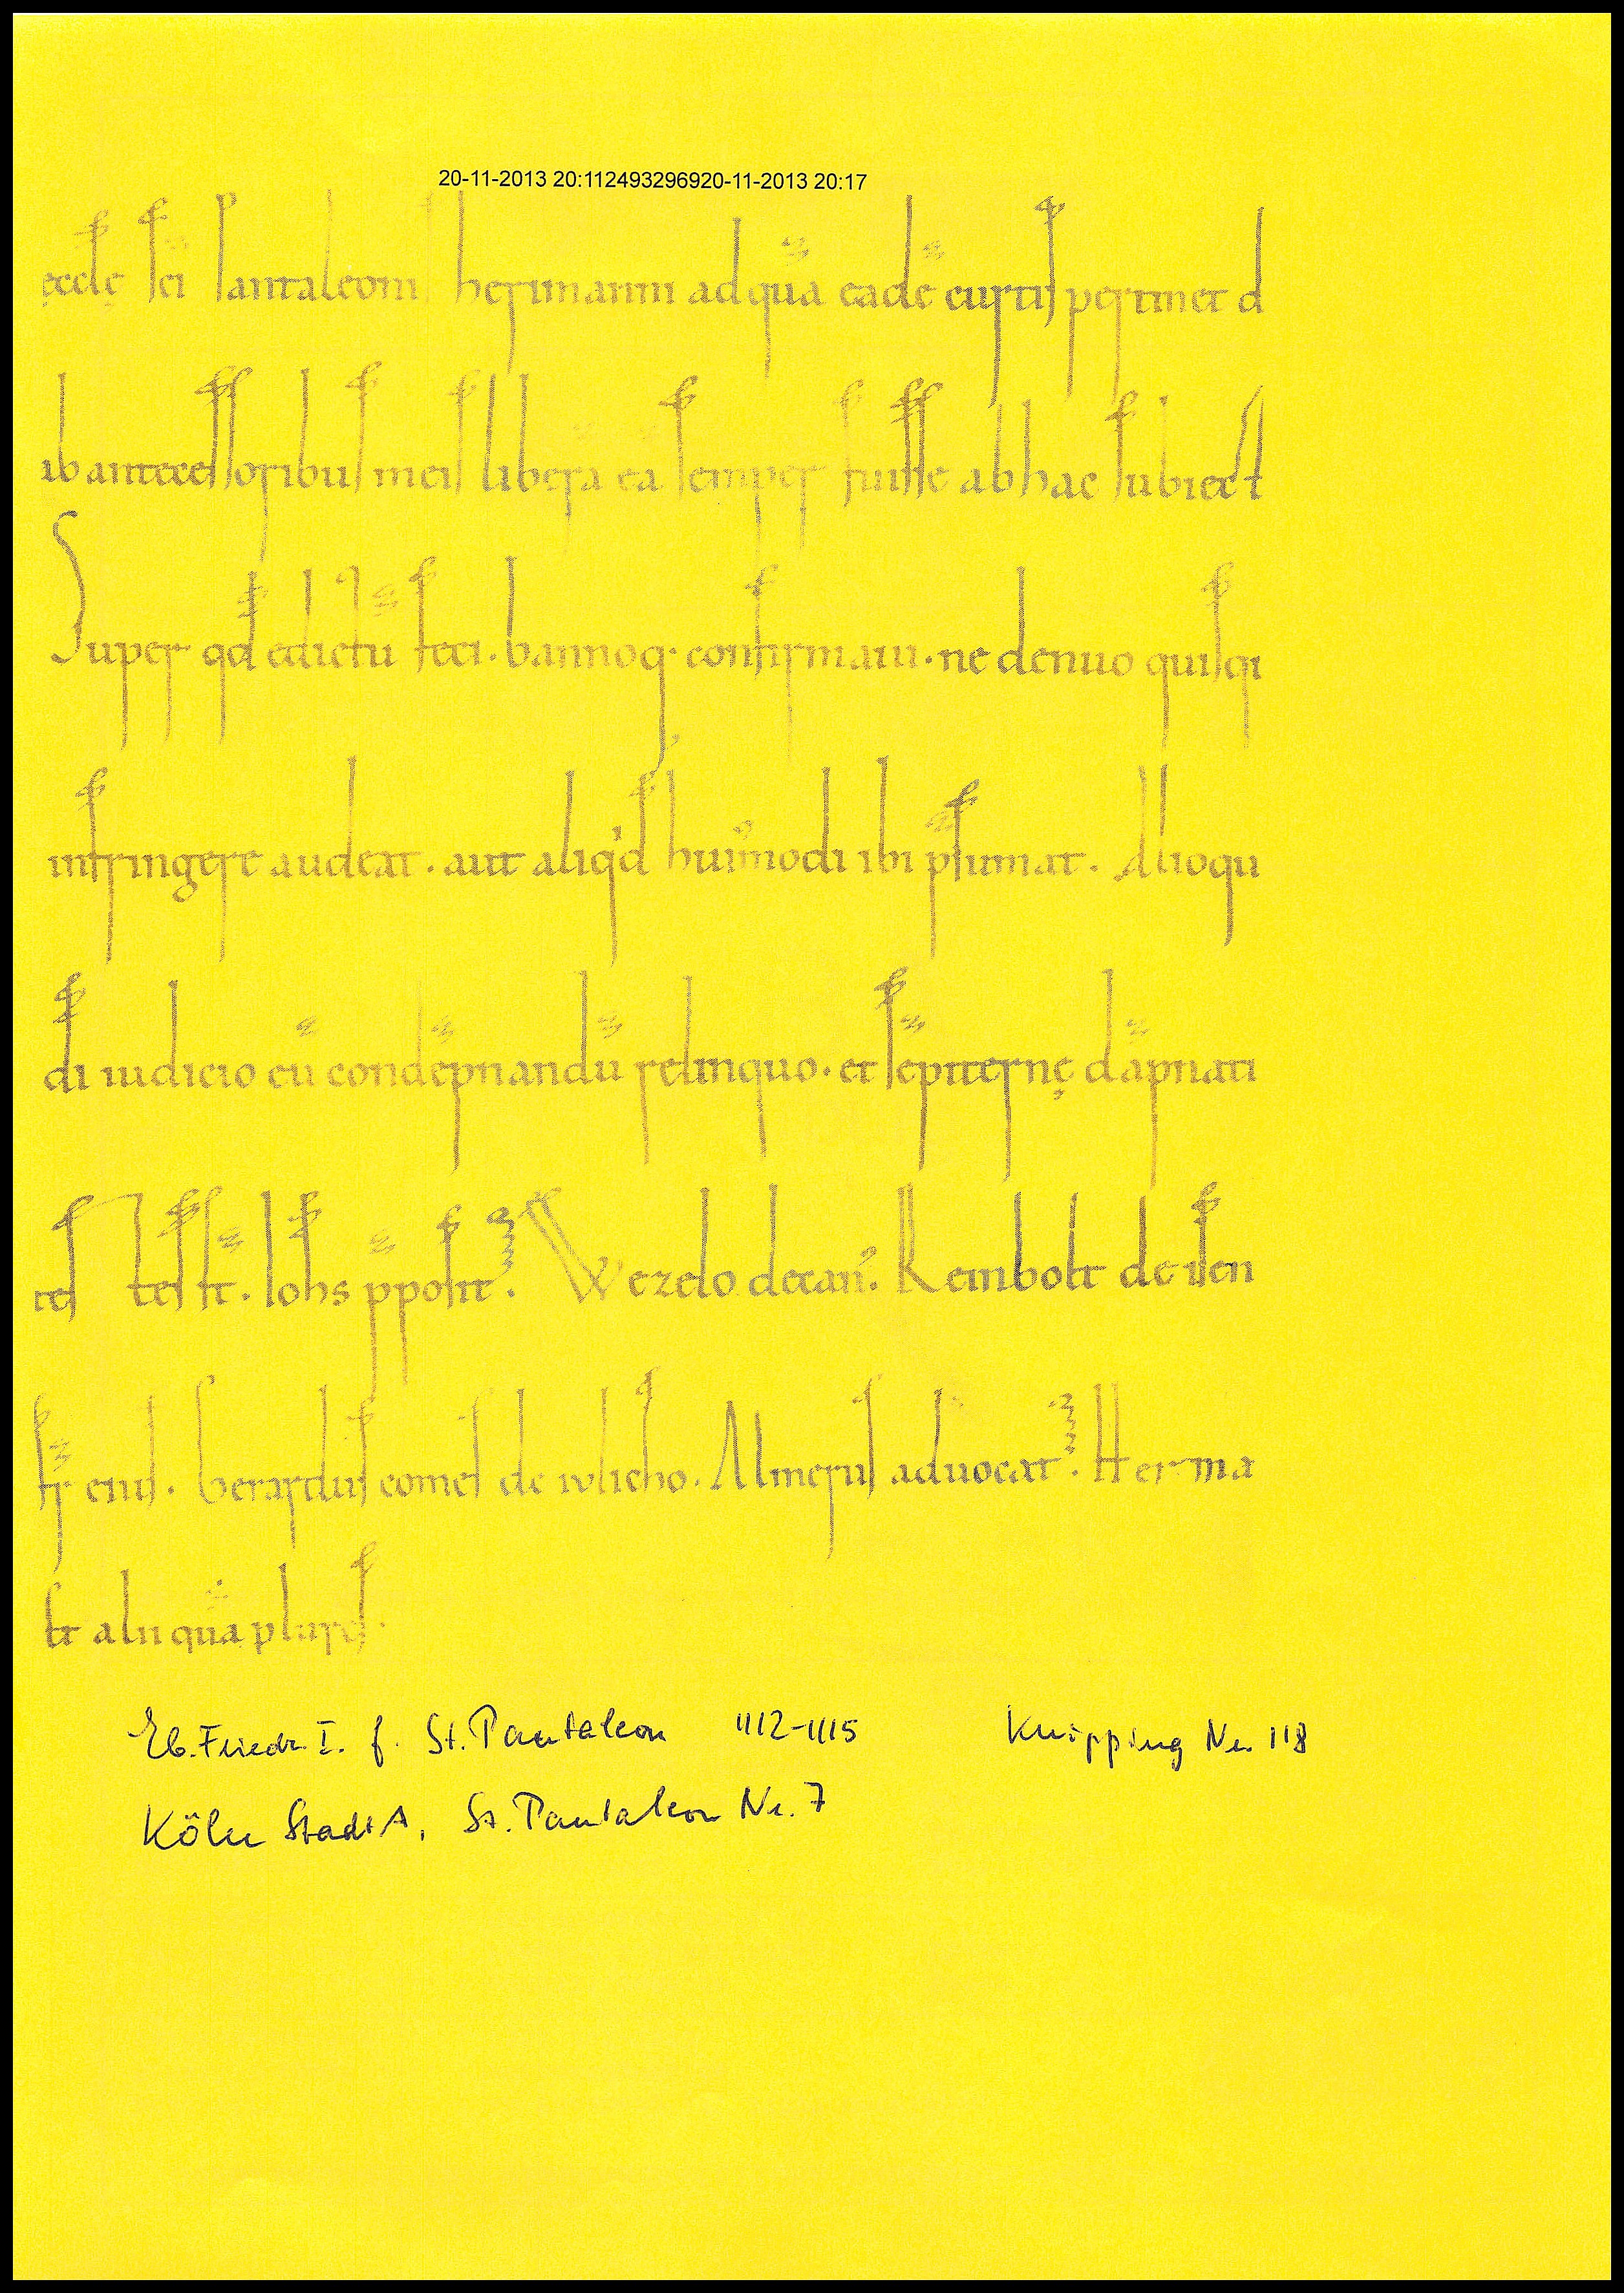 20-11-2013 20:112493296920-11-2013 20:17
ęcclę sci Pantaleonis herimanni ad quā eadē curtis pertinet d
ib antecessoribus meis liberā eā semper fuisse ab hac subiect
Super qd edictū feci. bannoq; confirmaui. ne denuo quisqi
infringere audeat. aut aliqd huimodi ibi psumat. Alioqu
di iudicio eū condēpnandū relinquo. et sēpiternę dāpnati
tes Testes st. Iohs pposit. Wezelo decan. Rembolt de isen
fr eius. Gerardus comes de iulicho. Almerus aduocat. Herma
Et alii quā plures.
Eb. Friedr. I. f. St. Pantaleon 1112-1115 Knipping Nr. 118
Köln StadtA, St. Pantaleon Nr. 7